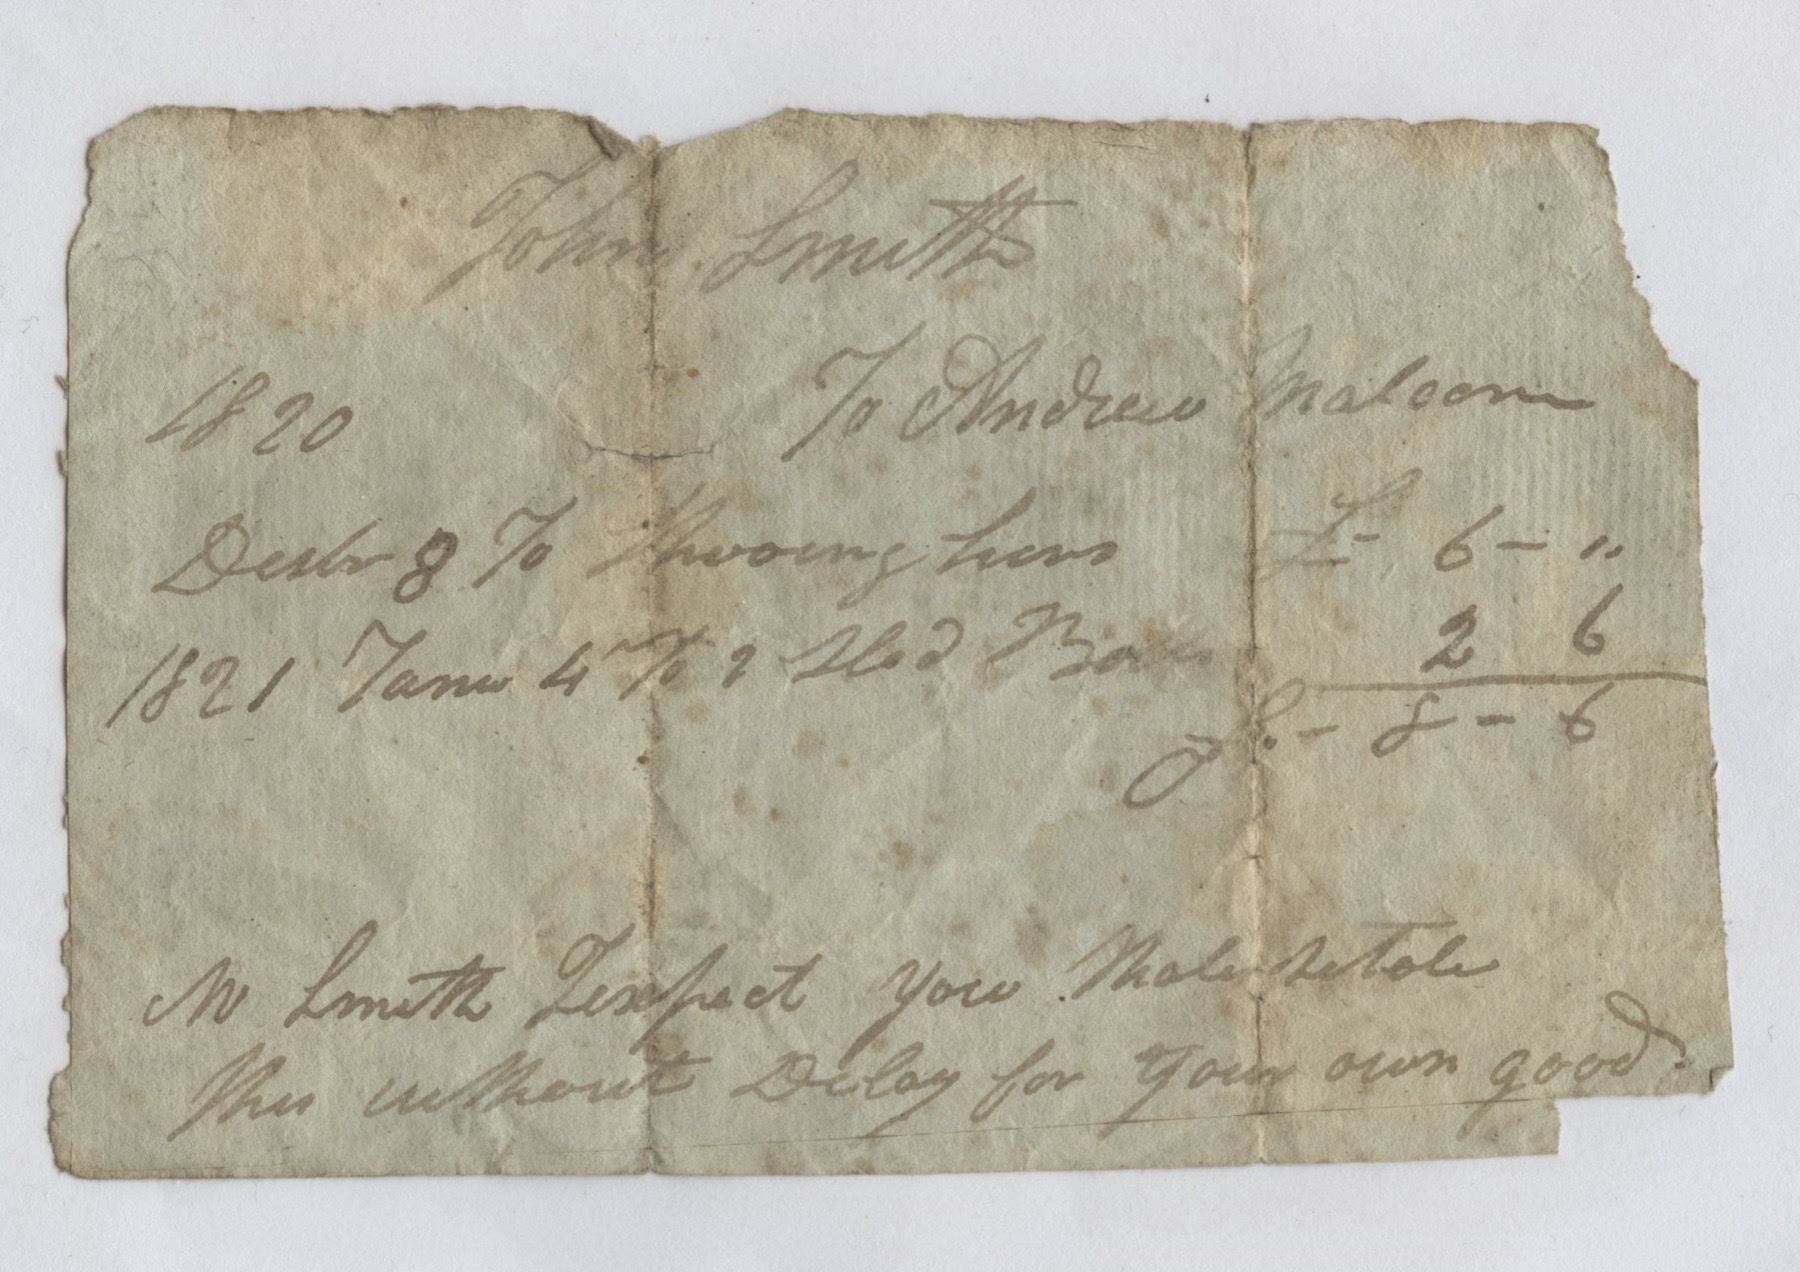 John Smith
1820 To Andrew Malcom
Desbr 8 To £ 6 - "
1821 Janu 4 To 2 Sled 2 6
£ - 8 - 6
Mr Smith I expect you
this without Delay for your own good.